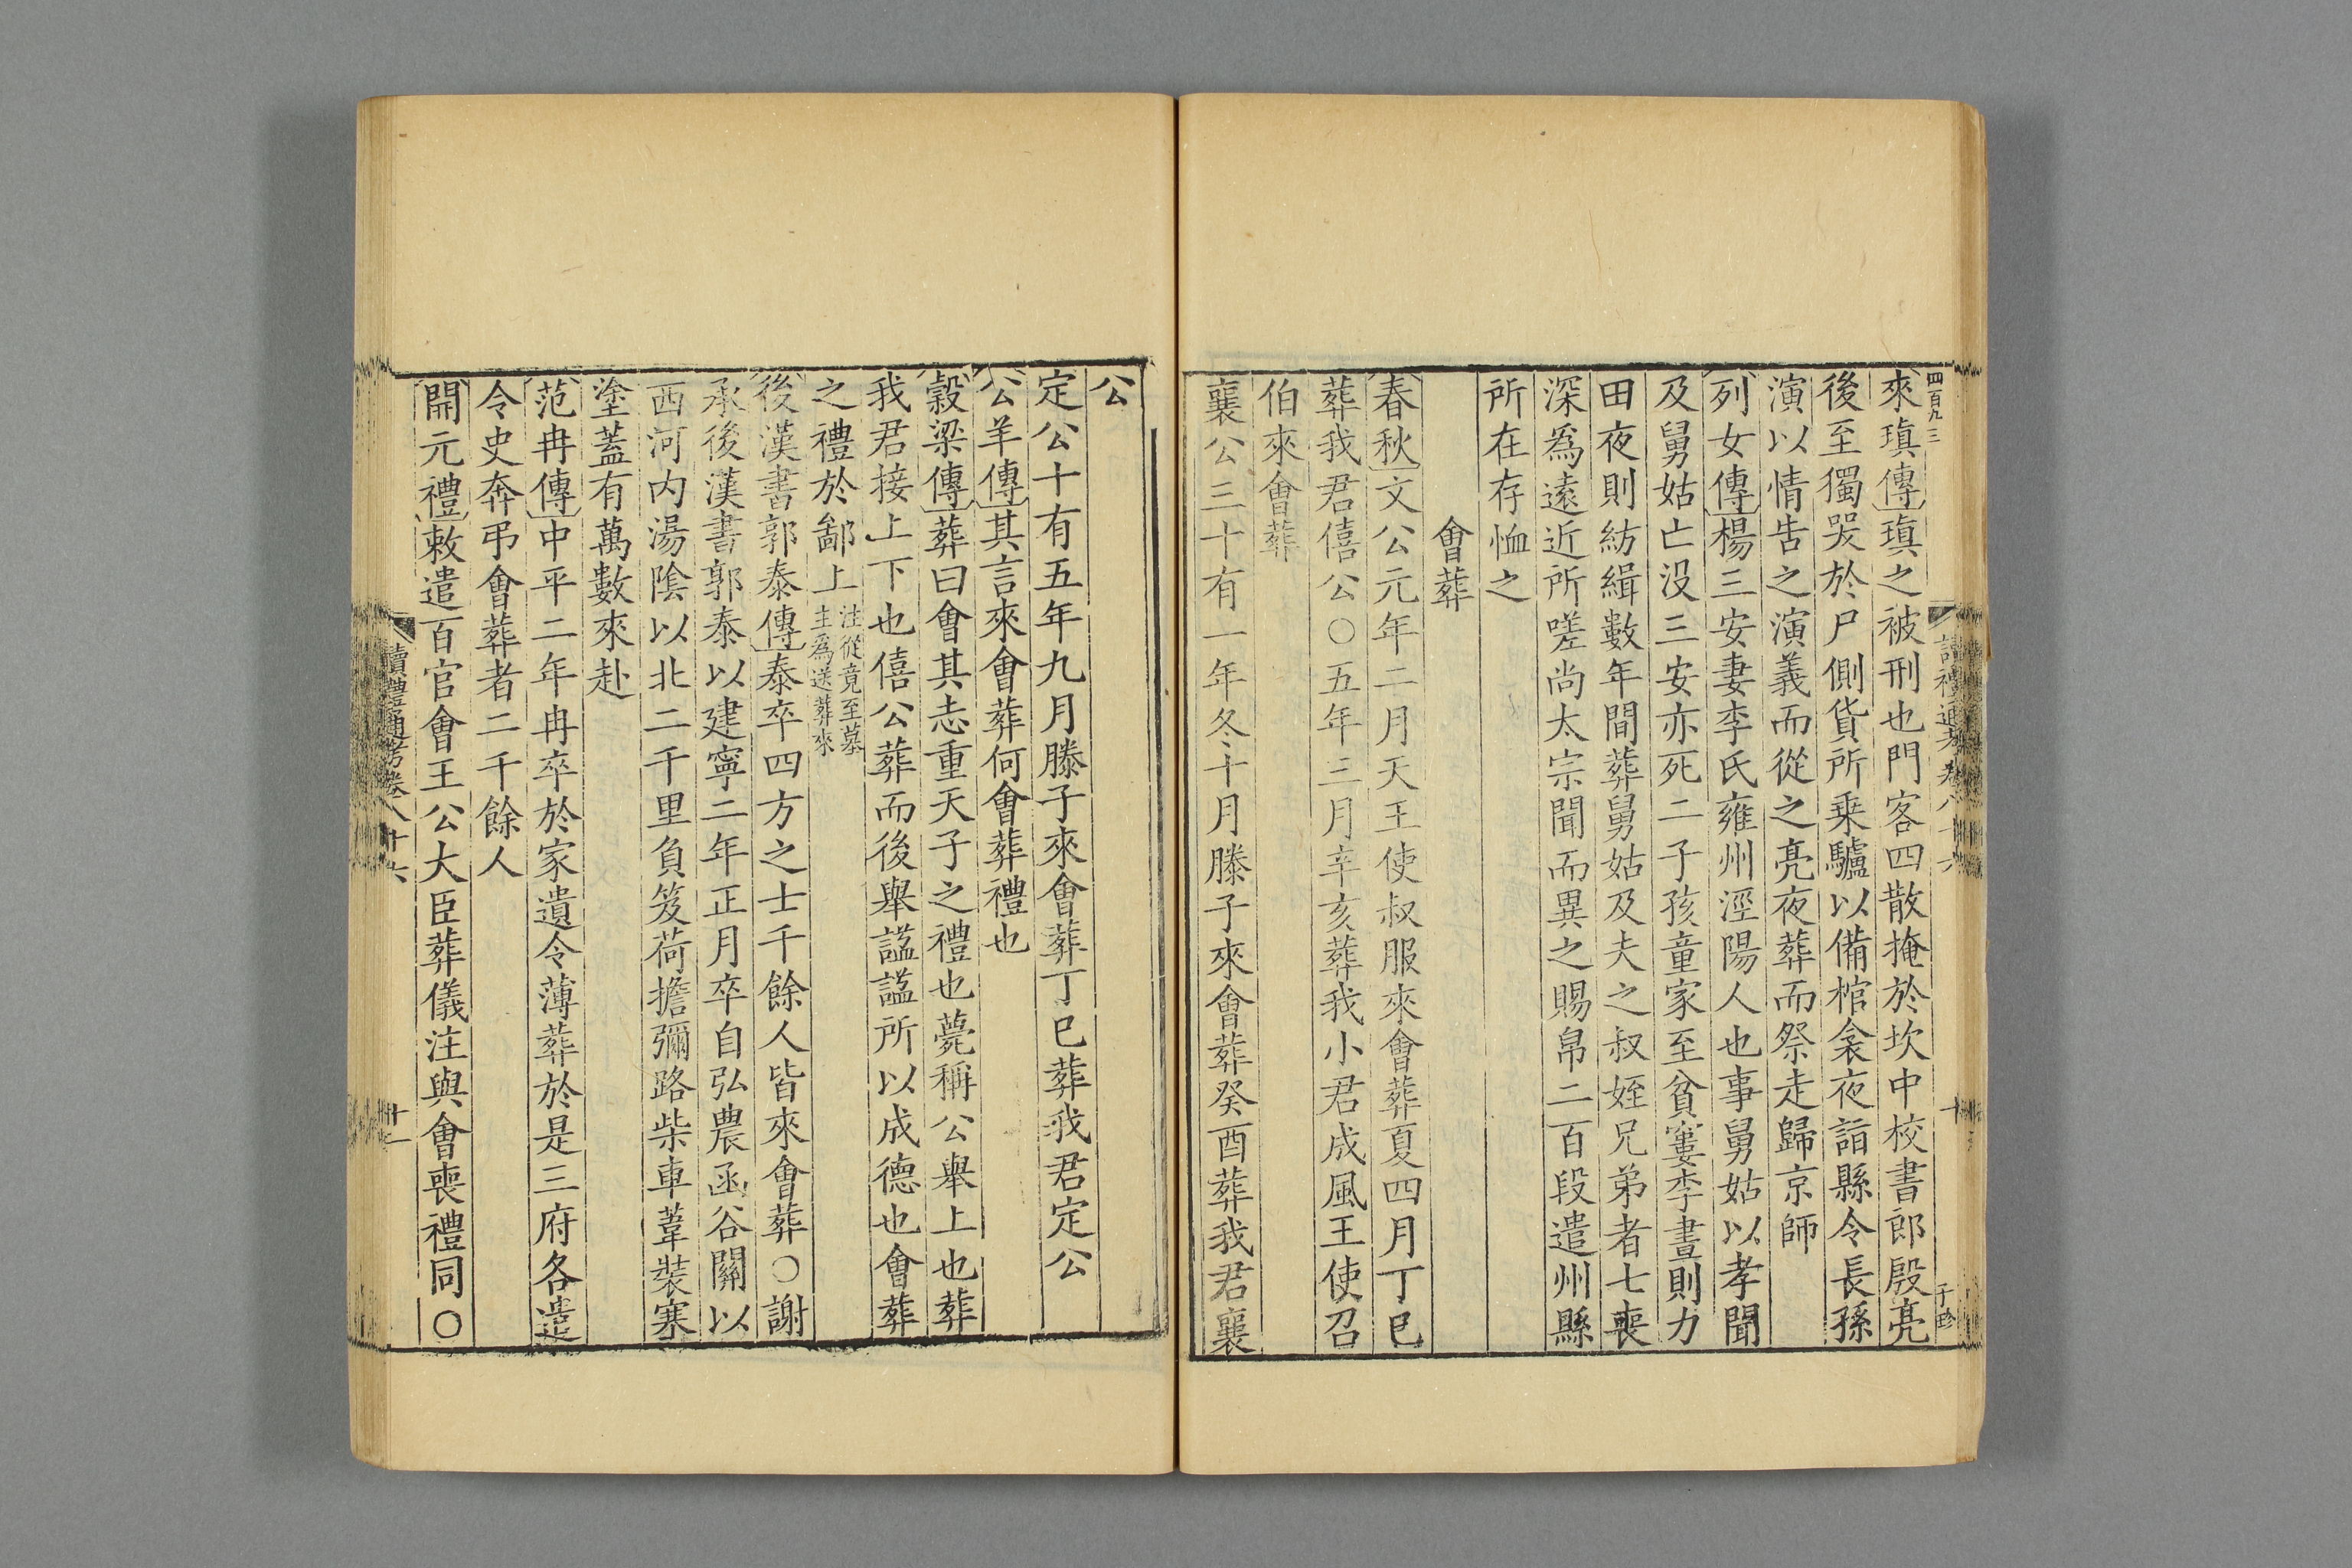 四百九三
讀禮通考卷八十六
十
子珍
來瑱傳瑱之被刑也門客四散掩於坎中校書郎殷亮
後至獨哭於尸側貨所乗驢以備棺衾夜詣縣令長孫
演以情告之演義而從之亮夜葬而祭走歸京師
列女傳楊三安妻李氏雍州涇陽人也事舅姑以孝聞
及舅姑亡没三安亦死二子孩童家至貧窶李晝則力
田夜則紡緝數年間葬舅姑及夫之叔姪兄弟者七喪
深爲遠近所嗟尚太宗聞而異之賜帛二百段遣州縣
所在存恤之
會葬
春秋文公元年二月天王使叔服來會葬夏四月丁巳
葬我君僖公○五年三月辛亥葬我小君成風王使召
伯來會葬
襄公三十有一年冬十月滕子來會葬癸酉葬我君襄
公
定公十有五年九月滕子來會葬丁巳葬我君定公
公羊傳其言來會葬何會葬禮也
穀梁傳葬曰會其志重天子之禮也薨稱公舉上也葬
我君接上下也僖公葬而後舉諡諡所以成德也會葬
之禮於鄐上注從竟至墓
主爲送葬來
後漢書郭泰傳泰卒四方之士千餘人皆來會葬○謝
承後漢書郭泰以建寧二年正月卒自弘農函谷關以
西河内湯陰以北二千里負笈荷擔彌路柴車葦裝塞
塗蓋有萬數來赴
范冉傳中平二年冉卒於家遺令薄葬於是三府各遣
令史奔弔會葬者二千餘人
開元禮敕遣百官會王公大臣葬儀注與會喪禮同○
讀禮通考卷八十六
十一